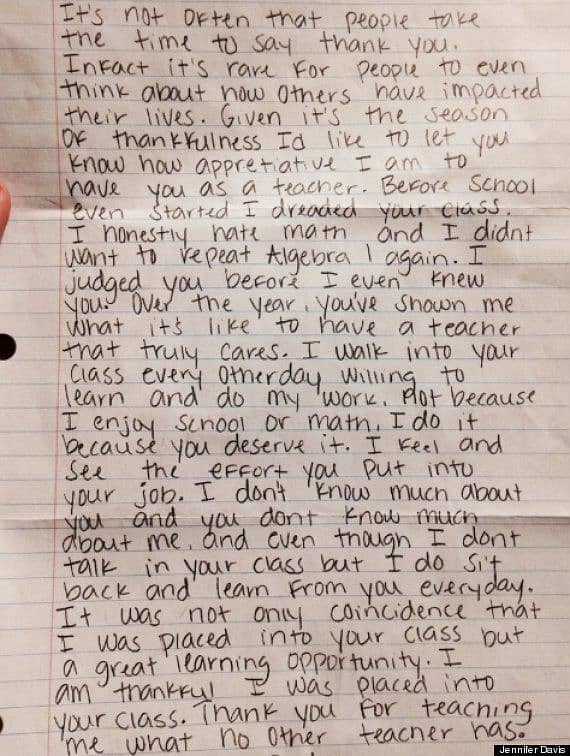 It's not often that people take
the time to say thank you.
Infact it's rare for people to even
think about how others have impacted
their lives. Given it's the season
of thankfulness I'd like to let you
know how appretiative I am to
have you as a teacher. Before school
even started I dreaded your class.
I honestly hate math and I didnt
want to repeat Algebra 1 again. I
judged you before I even knew
you. Over the year, you've shown me
what it's like to have a teacher
that truly cares. I walk into your
class every otherday willing to
learn and do my work. Not because
I enjoy school or math, I do it
because you deserve it. I feel and
see the effort you put into
your job. I don't know much about
you and you dont know much
about me, and even though I dont
talk in your class but I do sit
back and learn from you everyday.
It was not only coincidence that
I was placed into your class but
a great learning opportunity. I
am thankful I was placed into
your class. Thank you for teaching
me what no other teacher has.
Jennifer Davis